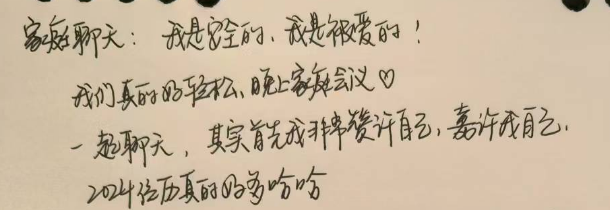 家庭聊天：我是安全的、我是被爱的！
我们真的好轻松、晚上家庭会议♡
一起聊天，其实首先我非常赞许自己，嘉许我自己.
2024经历真的好多哈哈